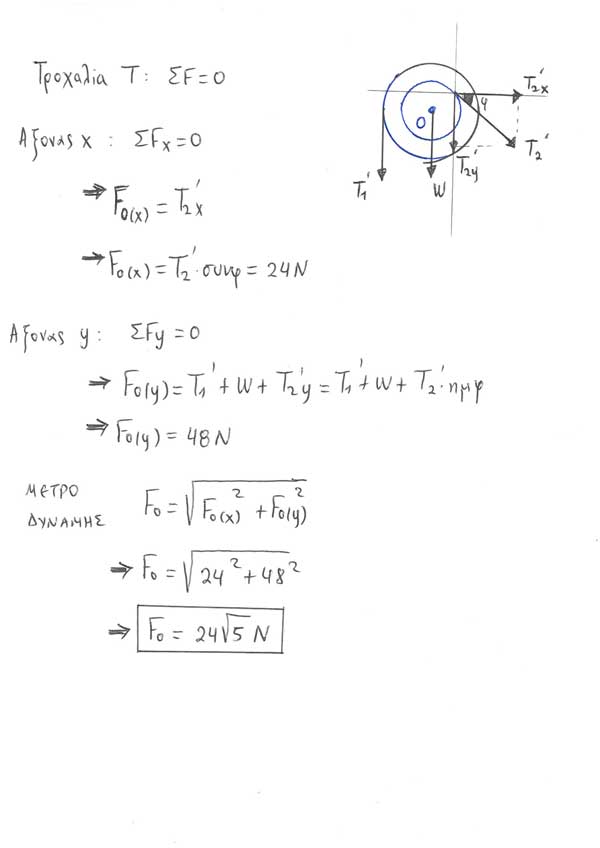 Τροχαλία Τ: ΣF=0
Άξονας x: ΣFx=0
⇒ F₀(x) = T₂x'
⇒ F₀(x) = T₂'·συνφ = 24N
Άξονας y: ΣFy=0
⇒ F₀(y) = T₁' + W + T₂y' = T₁' + W + T₂'·ημφ
⇒ F₀(y) = 48N
ΜΕΤΡΟ
ΔΥΝΑΜΗΣ
F₀ = √(F₀(x)² + F₀(y)²)
⇒ F₀ = √(24² + 48²)
⇒ F₀ = 24√5 N
T₂x'
φ
O
T₂'
T₂y'
T₁'
W